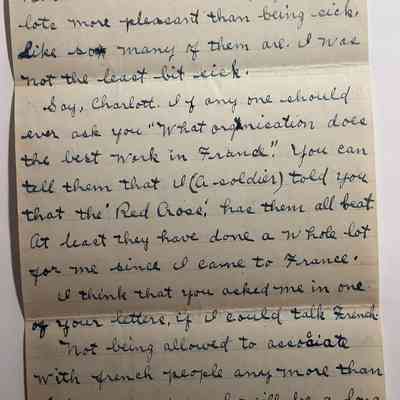 lots more pleasant than being sick.
Like so many of them are. I was
not the least bit sick.
Say, Charlott. If any one should
ever ask you "What organisation does
the best work in France". You can
tell them that I (A-soldier) told you
that the 'Red Cross,' has them all beat.
At least they have done a whole lot
for me since I came to France.
I think that you asked me in one
of your letters, if I could talk French
Not being allowed to associate
with french people any more than
will be a long